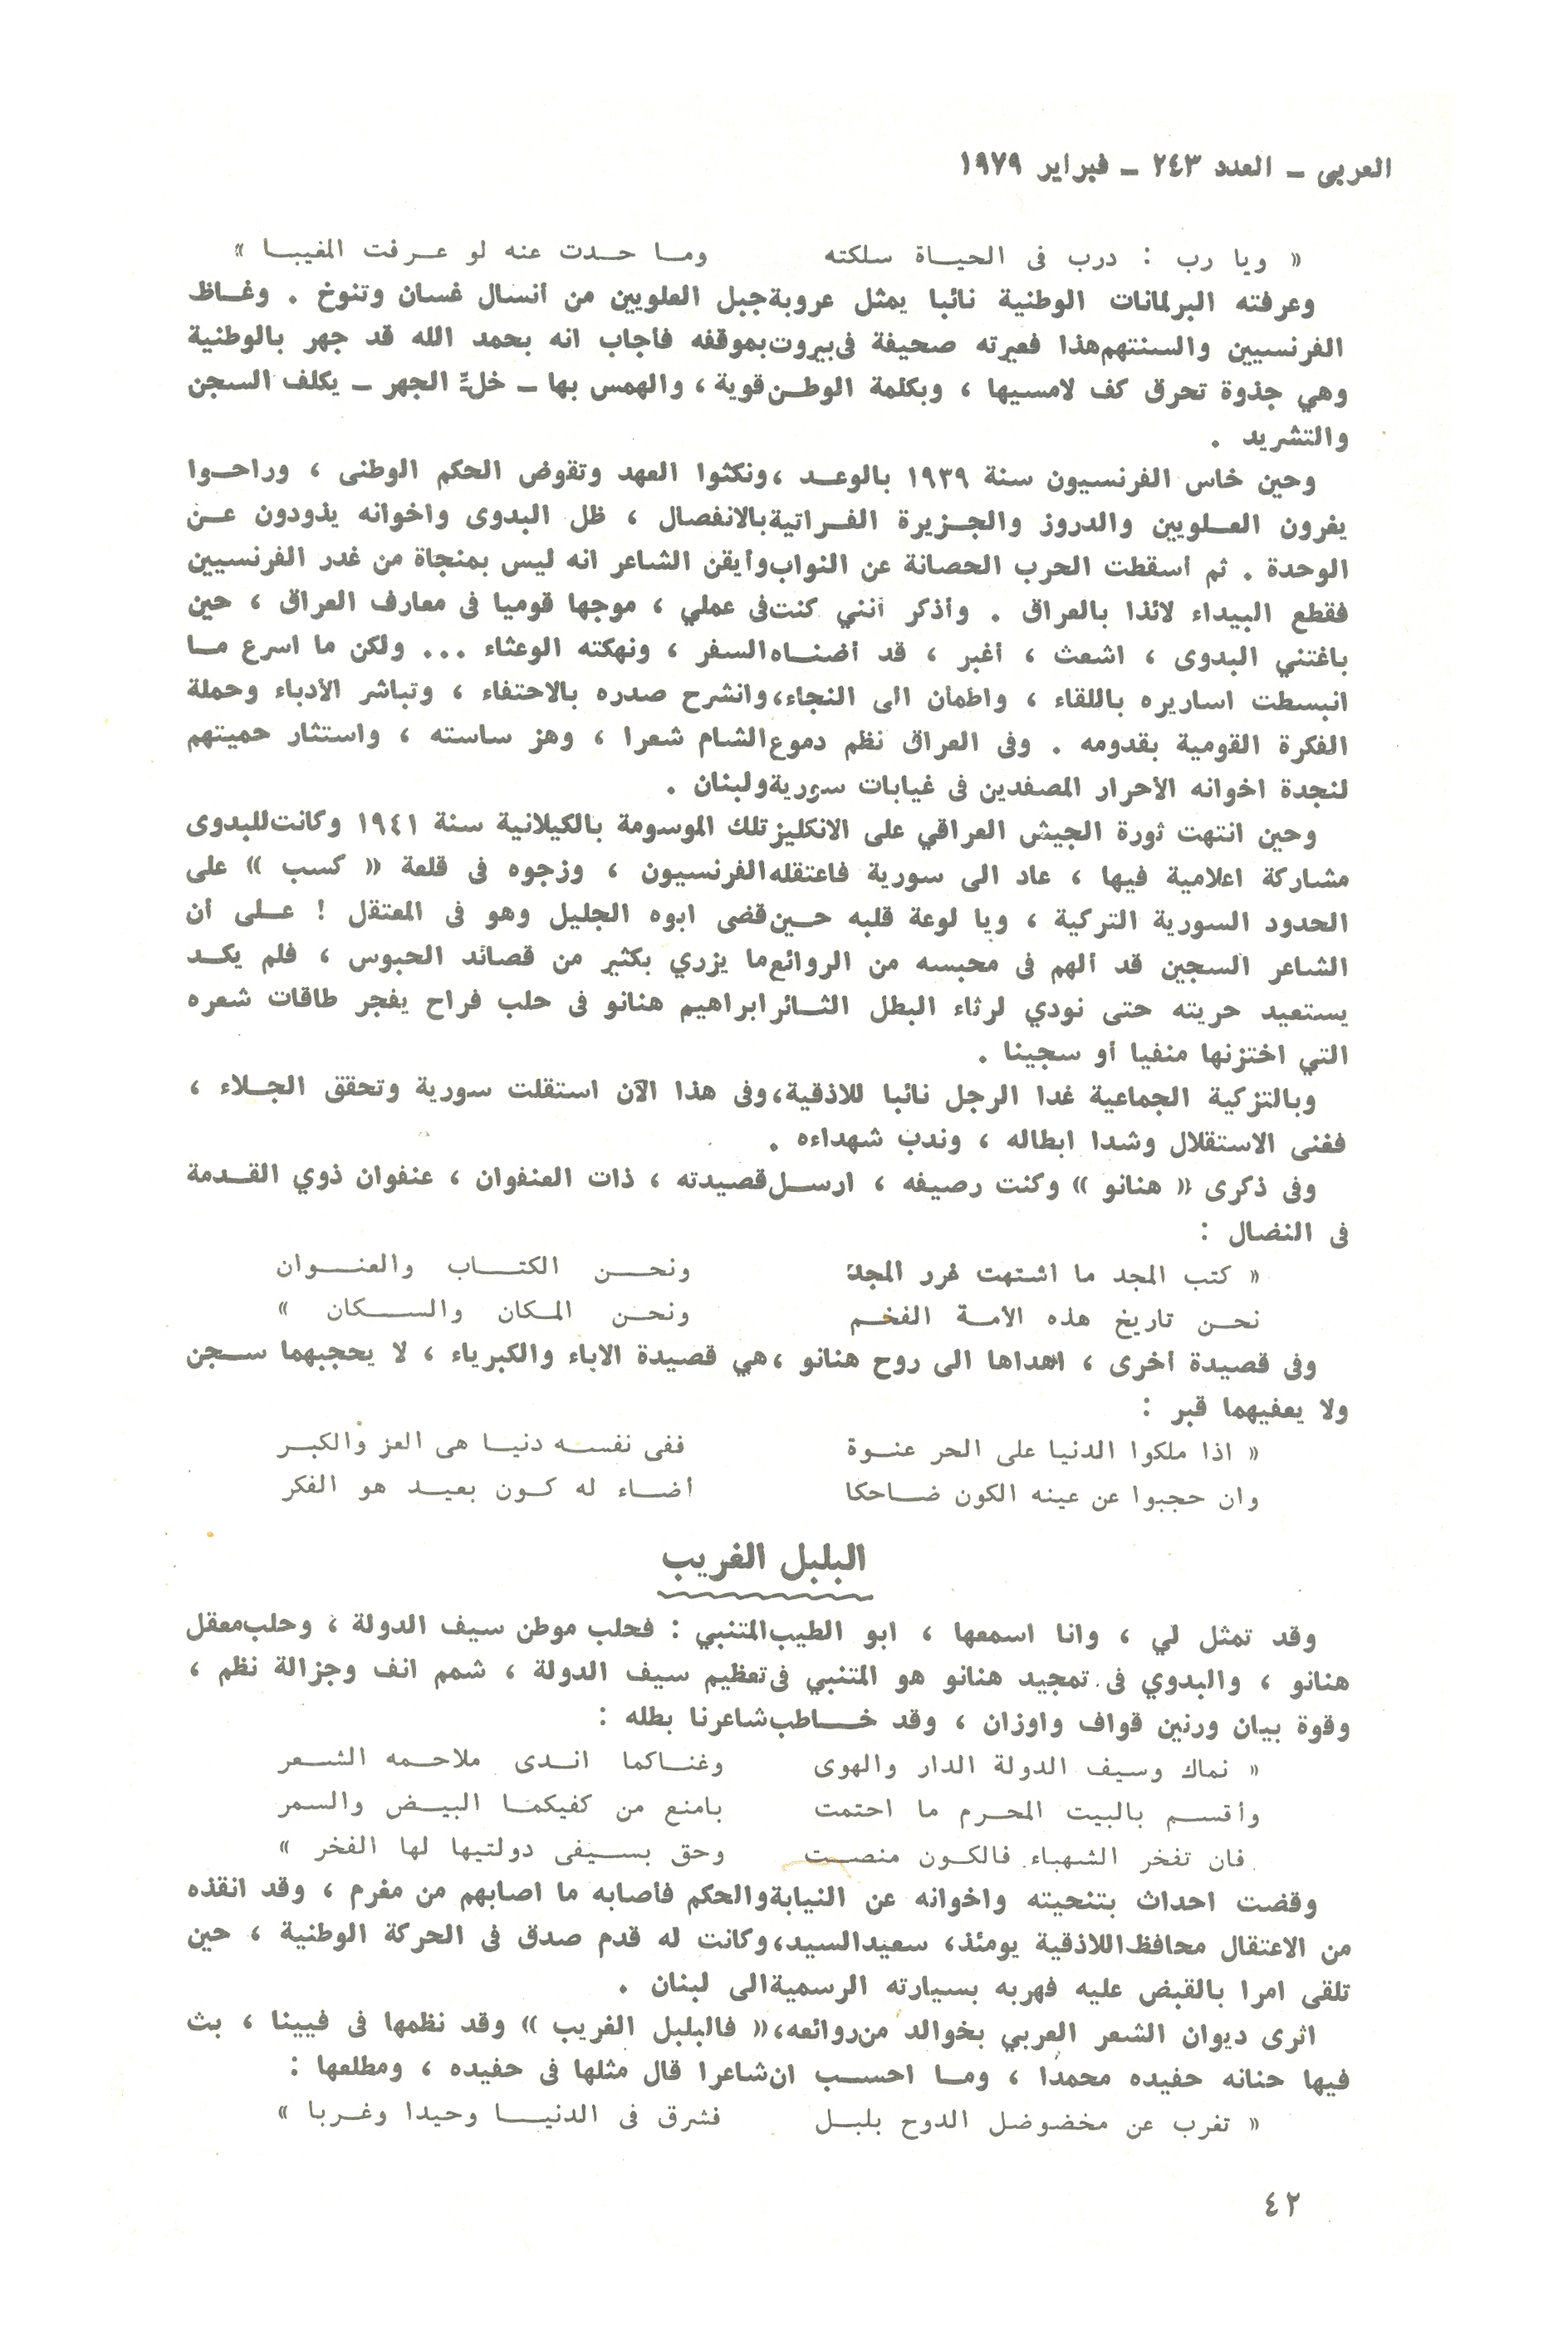 العربى ــ العدد ٢٤٣ ــ فبراير ١٩٧٩
« ويا رب : درب فى الحياة سلكته وما حدت عنه لو عرفت المغيبا »
وعرفته البرلمانات الوطنية نائبا يمثل عروبة جبل العلويين من أنسال غسان وتنوخ . وغاظ
الفرنسيين والسنتهم هذا فعيرته صحيفة فى بيروت بموقفه فأجاب انه بحمد الله قد جهر بالوطنية
وهي جذوة تحرق كف لامسيها ، وبكلمة الوطن قوية ، والهمس بها ــ خلِّ الجهر ــ يكلف السجن
والتشريد .
وحين خاس الفرنسيون سنة ١٩٣٩ بالوعد ، ونكثوا العهد وتقوض الحكم الوطنى ، وراحوا
يغرون العلويين والدروز والجزيرة الفراتية بالانفصال ، ظل البدوى واخوانه يذودون عن
الوحدة . ثم أسقطت الحرب الحصانة عن النواب وأيقن الشاعر انه ليس بمنجاة من غدر الفرنسيين
فقطع البيداء لائذا بالعراق . وأذكر أنني كنت فى عملي ، موجها قوميا فى معارف العراق ، حين
باغتني البدوى ، اشعث ، أغبر ، قد أضناه السفر ، ونهكته الوعثاء ... ولكن ما اسرع ما
انبسطت اساريره باللقاء ، واطمان الى النجاء ، وانشرح صدره بالاحتفاء ، وتباشر الأدباء وحملة
الفكرة القومية بقدومه . وفى العراق نظم دموع الشام شعرا ، وهز ساسته ، واستثار حميتهم
لنجدة اخوانه الأحرار المصفدين فى غيابات سورية ولبنان .
وحين انتهت ثورة الجيش العراقي على الانكليز تلك الموسومة بالكيلانية سنة ١٩٤١ وكانت للبدوى
مشاركة اعلامية فيها ، عاد الى سورية فاعتقله الفرنسيون ، وزجوه فى قلعة « كسب » على
الحدود السورية التركية ، ويا لوعة قلبه حين قضى ابوه الجليل وهو فى المعتقل ! على أن
الشاعر السجين قد ألهم فى محبسه من الروائع ما يزري بكثير من قصائد الحبوس ، فلم يكد
يستعيد حريته حتى نودي لرثاء البطل الثائر ابراهيم هنانو فى حلب فراح يفجر طاقات شعره
التي اختزنها منفيا أو سجينا .
وبالتزكية الجماعية غدا الرجل نائبا للاذقية ، وفى هذا الآن استقلت سورية وتحقق الجلاء ،
فغنى الاستقلال وشدا ابطاله ، وندب شهداءه .
وفى ذكرى « هنانو » وكنت رصيفه ، ارسل قصيدته ، ذات العنفوان ، عنفوان ذوي القدمة
فى النضال :
« كتب المجد ما اشتهت غرر المجد ونحن الكتاب والعنوان
نحن تاريخ هذه الأمة الفخم ونحن المكان والسكان »
وفى قصيدة أخرى ، اهداها الى روح هنانو ، هي قصيدة الاباء والكبرياء ، لا يحجبهما سجن
ولا يعفيهما قبر :
« اذا ملكوا الدنيا على الحر عنوة ففى نفسه دنيا هى العز والكبر
وان حجبوا عن عينه الكون ضاحكا أضاء له كون بعيد هو الفكر
البلبل الغريب
وقد تمثل لي ، وانا اسمعها ، ابو الطيب المتنبي : فحلب موطن سيف الدولة ، وحلب معقل
هنانو ، والبدوي فى تمجيد هنانو هو المتنبي فى تعظيم سيف الدولة ، شمم انف وجزالة نظم ،
وقوة بيان ورنين قواف واوزان ، وقد خاطب شاعرنا بطله :
« نماك وسيف الدولة الدار والهوى وغناكما اندى ملاحمه الشعر
وأقسم بالبيت المحرم ما احتمت بامنع من كفيكما البيض والسمر
فان تفخر الشهباء فالكون منصت وحق بسيفى دولتيها لها الفخر »
وقضت احداث بتنحيته واخوانه عن النيابة والحكم فأصابه ما اصابهم من مغرم ، وقد انقذه
من الاعتقال محافظ اللاذقية يومئذ ، سعيد السيد ، وكانت له قدم صدق فى الحركة الوطنية ، حين
تلقى امرا بالقبض عليه فهربه بسيارته الرسمية الى لبنان .
اثرى ديوان الشعر العربي بخوالد من روائعه ، « فالبلبل الغريب » وقد نظمها فى فيينا ، بث
فيها حنانه حفيده محمدا ، وما احسب ان شاعرا قال مثلها فى حفيده ، ومطلعها :
« تغرب عن مخضوضل الدوح بلبل فشرق فى الدنيا وحيدا وغربا »
٤٢